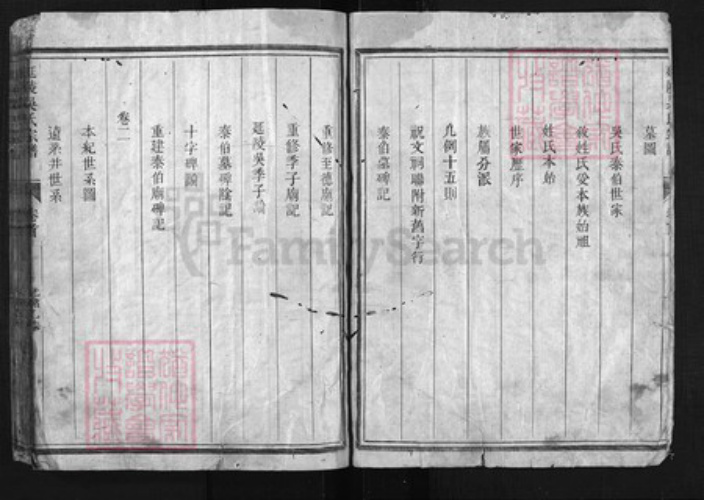 墓圖
吳氏泰伯世家
敘姓氏受本族始祖
姓氏本始
世家歷序
族屬分派
凡例十五則
祝文祠聯附新舊字行
泰伯墓碑記
重修至德廟記
重修季子廟記
延陵吳季子論
泰伯墓碑陰記
十字碑
重建泰伯廟碑記
卷二
本紀世系圖
遠系井世系
延陵吳氏宗譜
卷首
FamilySearch